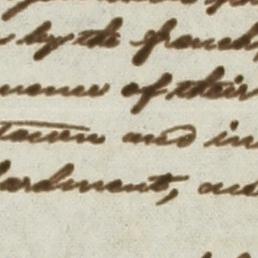 by the french
uence of their
town and in
ardment, and